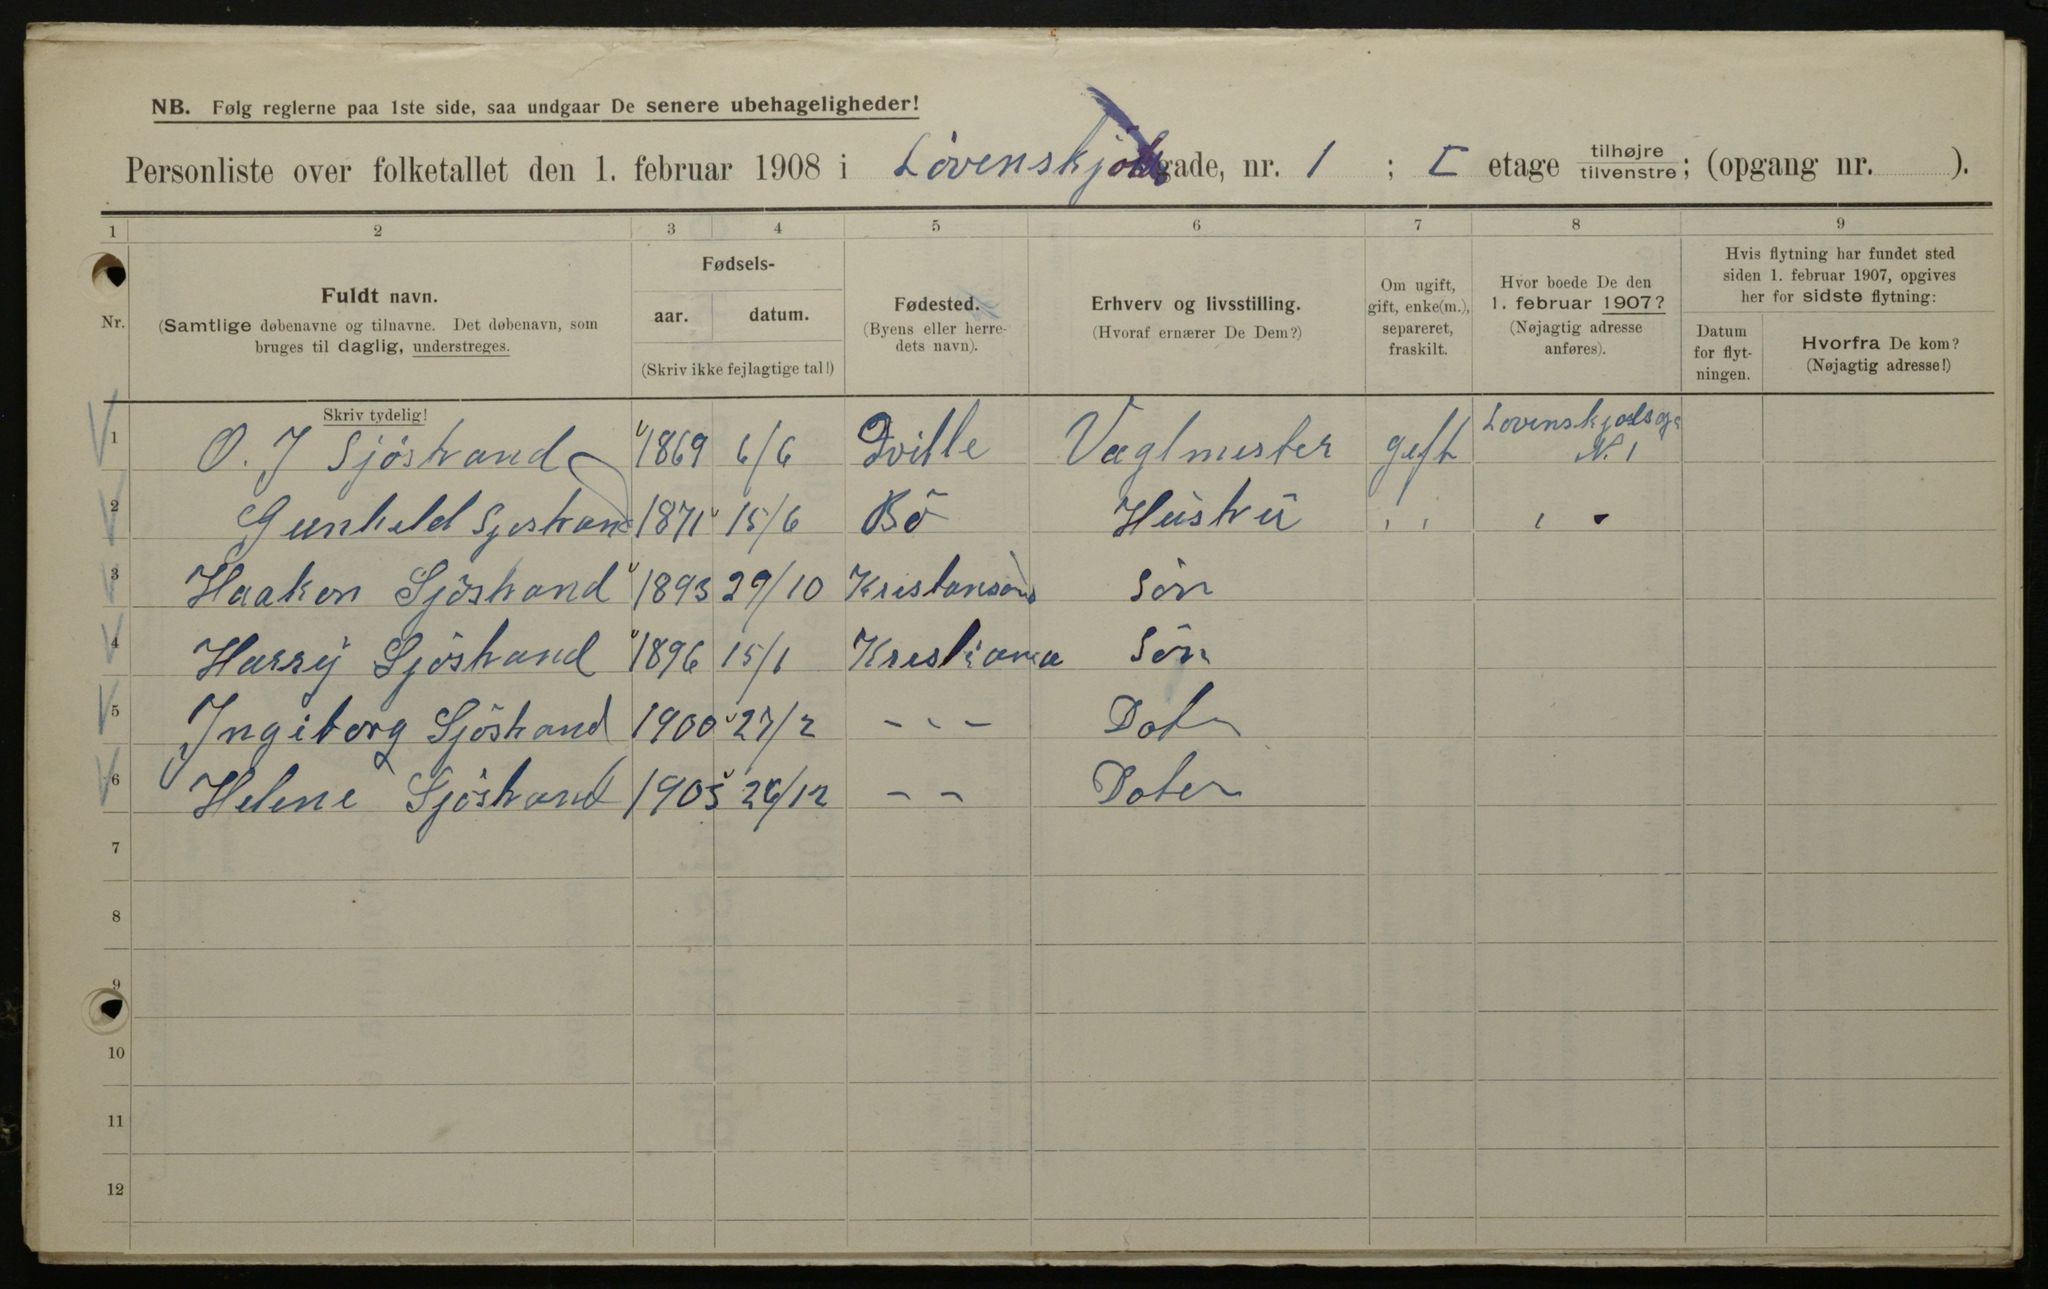 NB. Følg reglerne paa 1ste side, saa undgaar De senere ubehageligheder!
Personliste over folketallet den 1. februar 1908 i Lövenskjolds gade, nr. 1 ; I etage tilhøjre tilvenstre; (opgang nr. ).
1 2 3 4 5 6 7 8 9
Nr.
Fuldt navn.
(Samtlige døbenavne og tilnavne. Det døbenavn, som
bruges til daglig, understreges.
Skriv tydelig!
Fødsels-
aar. datum.
(Skriv ikke fejlagtige tal!)
Fødested.
(Byens eller herre-
dets navn).
Erhverv og livsstilling.
(Hvoraf ernærer De Dem?)
Om ugift,
gift, enke(m.),
separeret,
fraskilt.
Hvor boede De den
1. februar 1907?
(Nøjagtig adresse
anføres).
Hvis flytning har fundet sted
siden 1. februar 1907, opgives
her for sidste flytning:
Datum
for flyt-
ningen.
Hvorfra De kom?
(Nøjagtig adresse!)
1 O. J Sjöstrand 1869 6/6 Qville Vagtmester gift Lovenskjoldsg N. 1
2 Gunhild Sjostrand 1871 15/6 Bö Hustru " "
3 Haakon Sjöstrand 1893 29/10 Kristansand Sön
4 Harry Sjöstrand 1896 15/1 Kristiania Sön
5 Ingiborg Sjöstrand 1900 27/2 - - - Dater
6 Helene Sjöstrand 1905 26/12 - - Dater
7
8
9
10
11
12